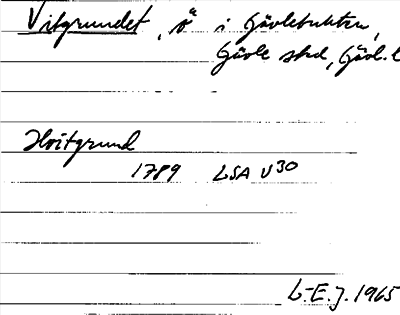 Vitgrundet, ö i Gävlebukten,
Gävle stad, Gävl. l
Hvitgrund
1789 LSA U30
L-E.J. 1965